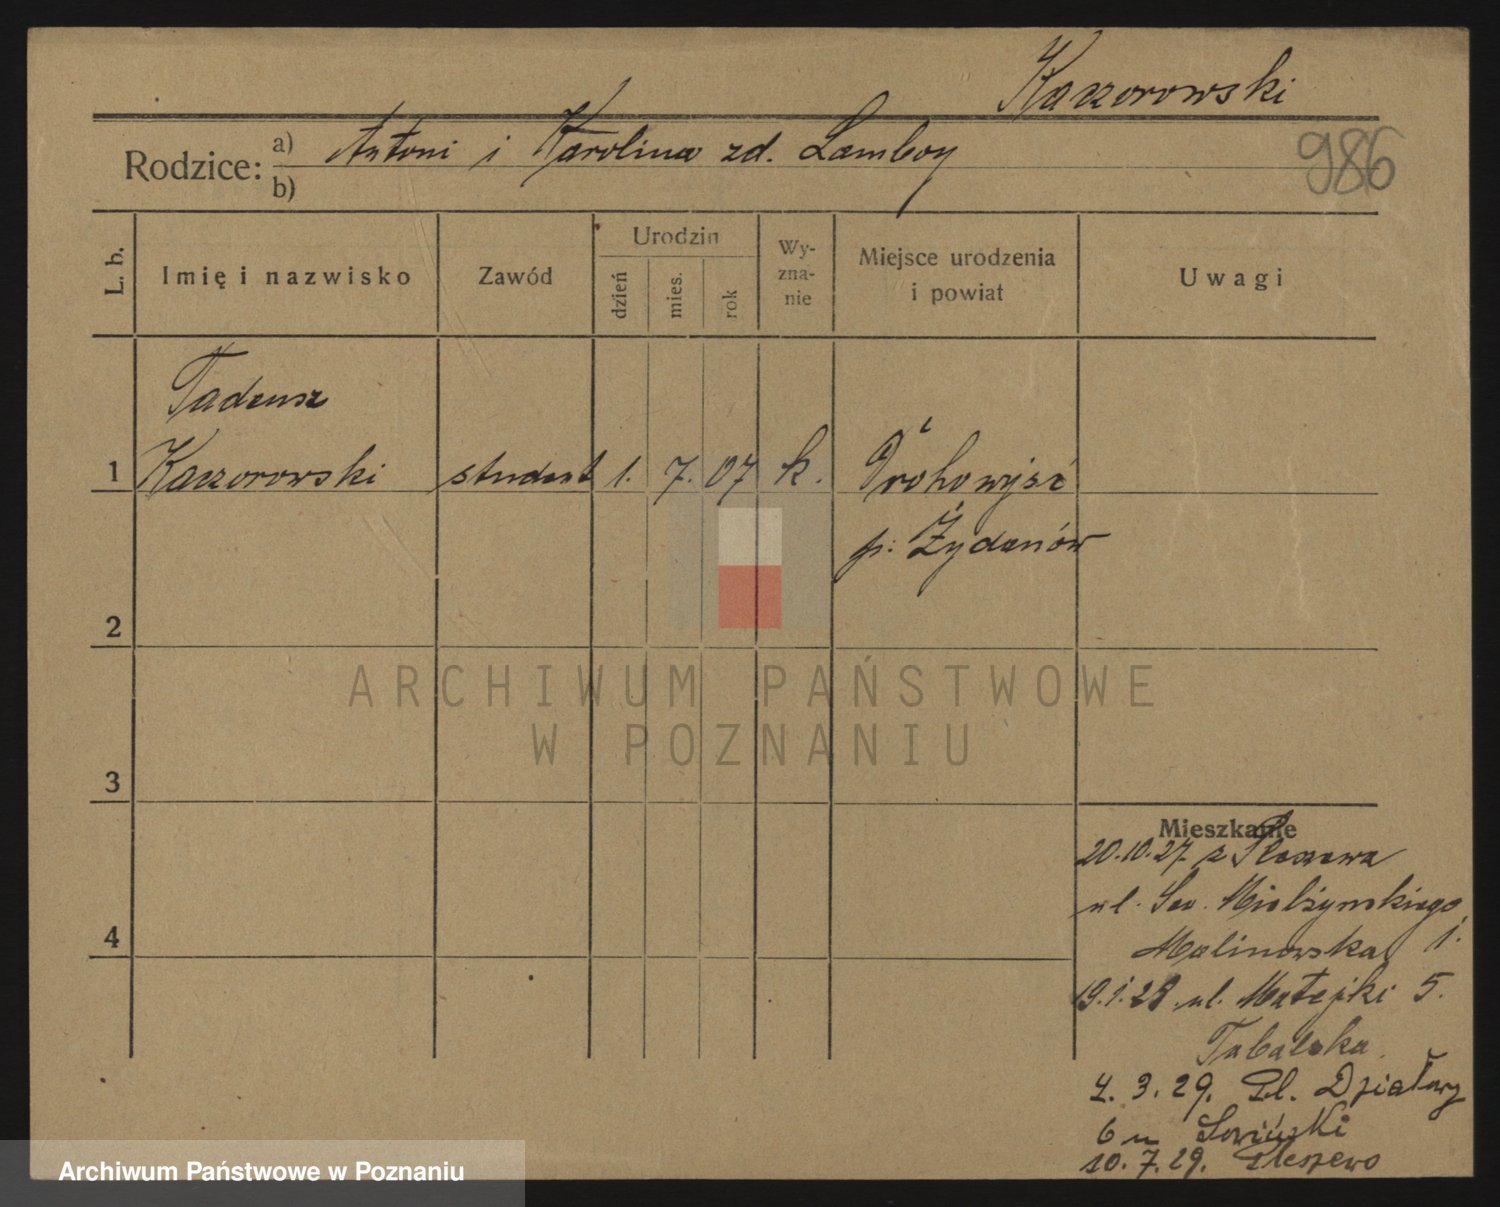 Kaczorowski
986
Rodzice: a) Antoni i Karolina zd. Lamboy
b)
L. b.
Imię i nazwisko
Zawód
Urodzin
dzień
mies.
rok
Wy-
zna-
nie
Miejsce urodzenia
i powiat
Uwagi
Tadeusz
1 Kaczorowski student 1. 7. 07 k.
p. Żydaczów
2
3
4
ARCHIWUM PAŃSTWOWE
W POZNANIU
Mieszkanie
20.10.27 z Pleszewa
ul. Sew. Mielżyńskiego
Malinowska 1.
19.1.28 ul. Matejki 5.
4. 3. 29. Pl. Działowy
6 u Sowiński
10. 7. 29. Pleszewo
Archiwum Państwowe w Poznaniu